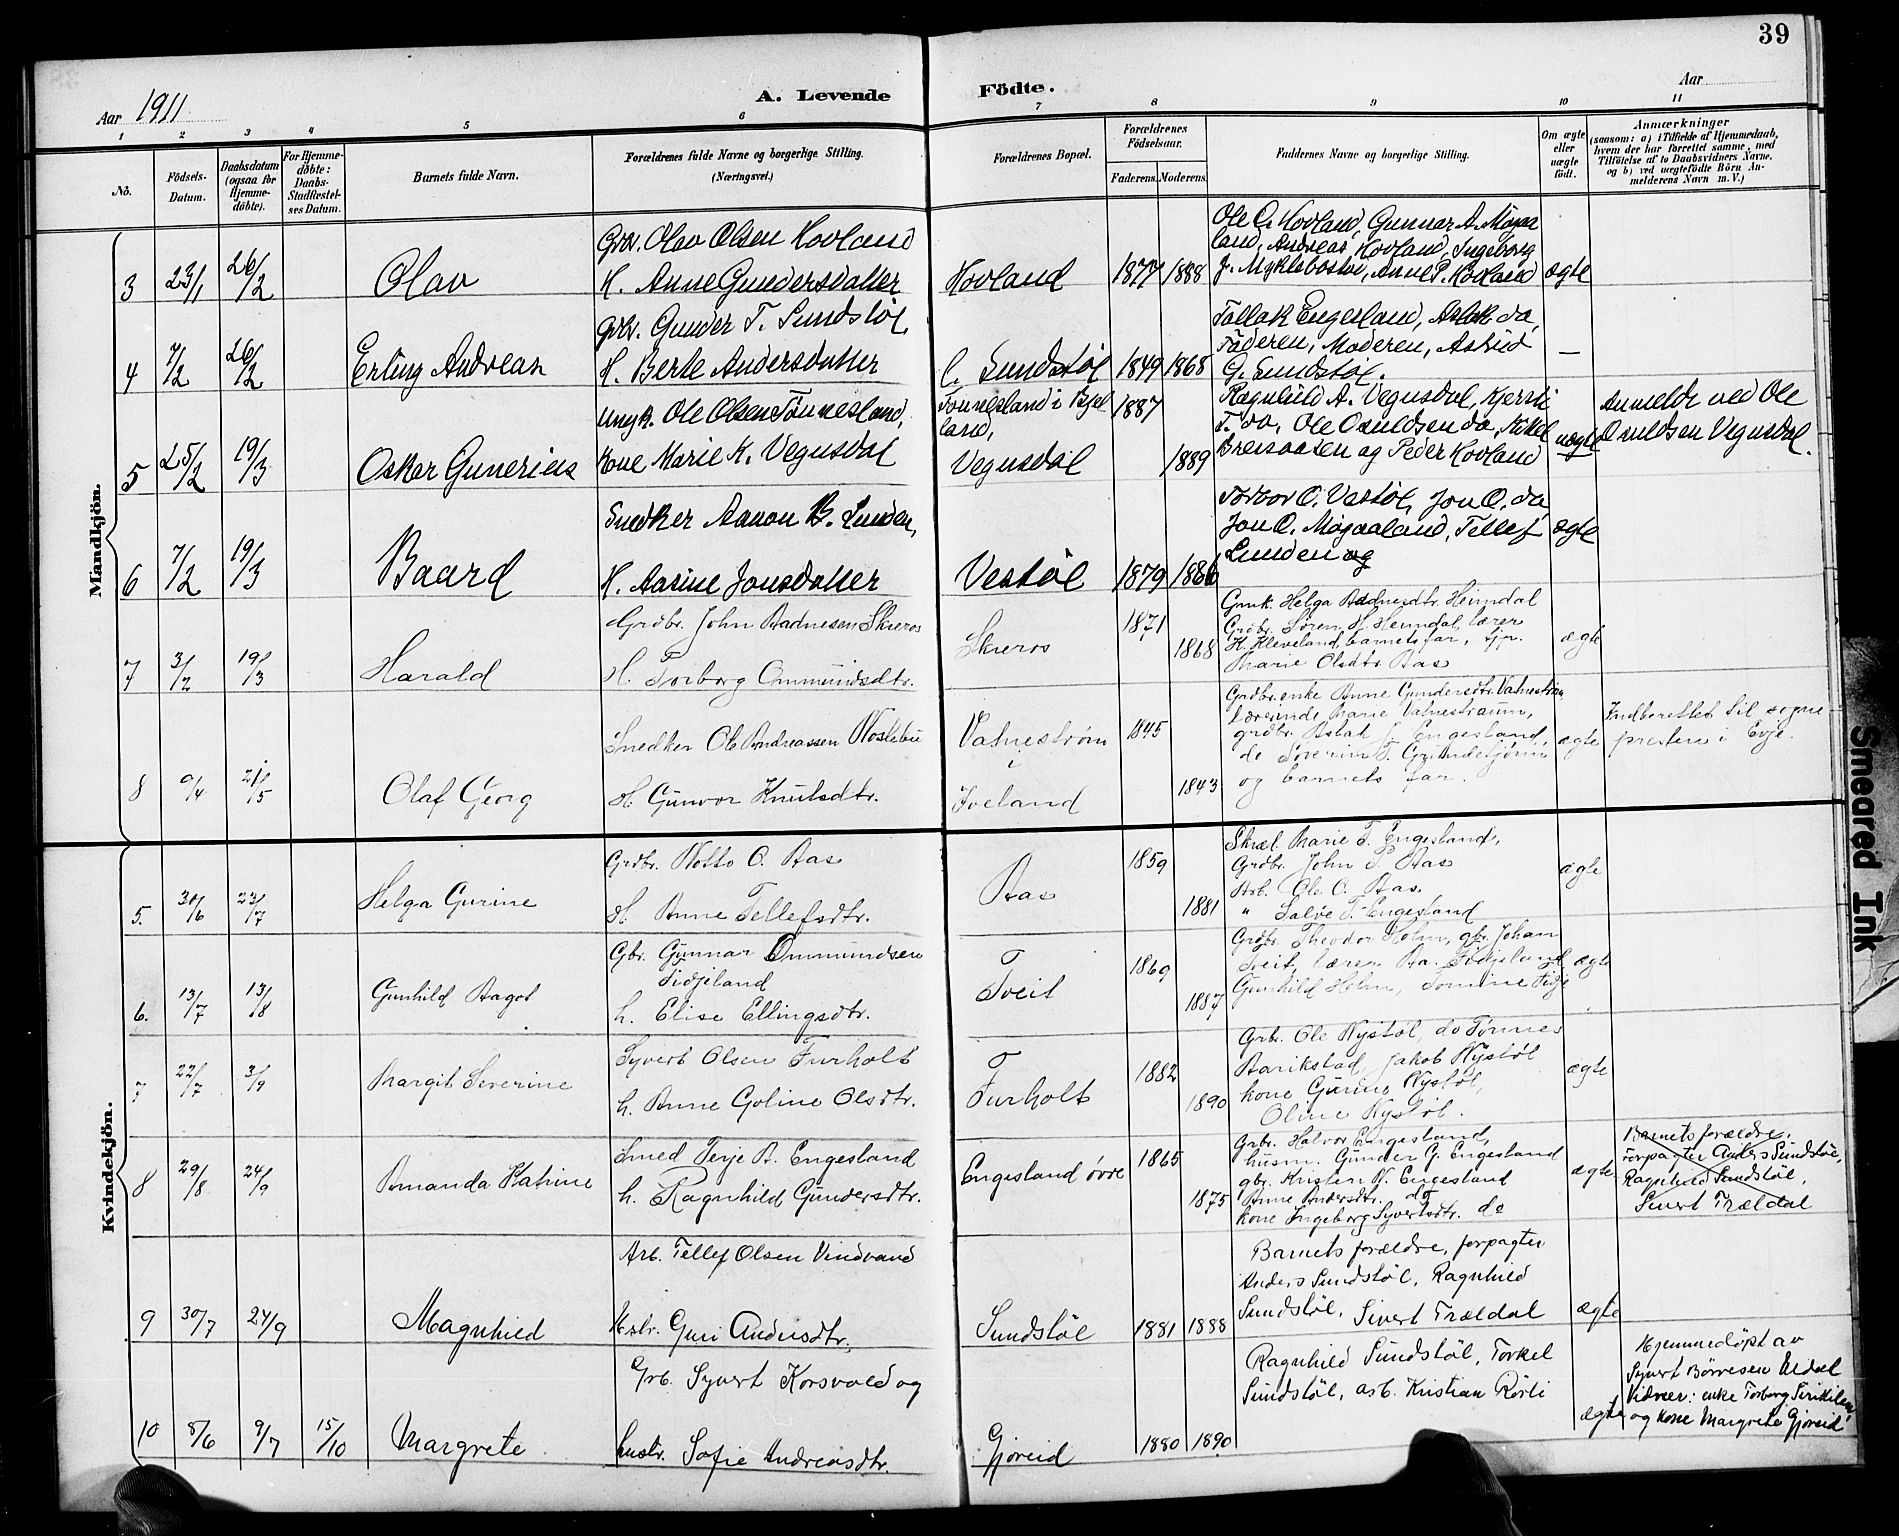 39
Aar 1911
A. Levende
Födte.
Aar
1 2 3 4 5 6 7 8 9 10 11
No.
Födsels-
Datum.
Daabsdatum
(ogsaa for
Hjemme-
döbte).
For Hjemme-
döbte:
Daabs-
Stadfæstel-
ses Datum.
Barnets fulde Navn.
Forældrenes fulde Navne og borgerlige Stilling.
(Næringsvei.)
Forældrenes Bopæl.
Forældrenes
Födselsaar.
Faderens.
Moderens.
Faddernes Navne og borgerlige Stilling.
Om ægte
eller
uægte
födt.
Anmærkninger
(saasom: a) i Tilfælde af Hjemmedaab,
hvem der har forrettet samme, med
Tilföielse af to Daabsvidners Navne.
og b) ved uægtefödte Börn An-
melderens Navn m. V.)
Mandkjön.
3 23/1 26/2 Olav
Grbr. Olav Olsen Hovland
H. Anne Gundersdatter
Hovland 1877 1888
Ole O. Hovland, Gunnar A. Mogaa
land, Andreas Hovland, Ingeborg
J. Myklebostø, Anne P. Hovland
ægte
4 7/2 26/2 Erling Andreas
Grbr. Gunder T. Sundstøl,
H. Berte Andersdatter
Sundstøl 1849 1868
Tallak Engesland, Aslak do,
Faderen, Moderen, Astrid
G. Sundstøl.
—
5 25/2 19/3 Oskar Gunerius
Ungk. Ole Olsen Tønnesland,
Kone Marie K. Vegusdal
Tønnesland i Bjel
land,
Vegusdal
1887 1889
Ragnhild A. Vegusdal, Kjersti
T. do, Ole Osuldsen do, Kittel
Breisaasen og Peder Hovland
uægte
Anmeldt ved Ole
Osuldsen Vegusdal.
6 7/2 19/3 Baard
Snedker Aanon B. Lunden,
H. Aasine Jonsdatter
Vestøl 1879 1886
Torbor O. Vestøl, Jon O. do,
Jon O. Mogaaland, Tellef
Lunden og
ægte
7 3/2 19/3 Harald
Grdbr. John Aadnesen Skreros
H. Torborg Ommundsdtr.
Skreros 1871 1868
Gmk. Helga Aadnesdtr. Heimdal
Grdbr. Søren H. Heimdal, lærer
K. Kleveland, barnets far,
Marie Olsdtr. Aas
ægte
8 9/4 21/5 Olaf Georg
Snedker Ole Andreassen Noslebu
H. Gunvor Knutsdtr.
Vatnestrøm
i
Iveland
1845 1843
Grdbr. enke Anne Gundersdtr. Vatnestrøm,
lærerinde Marie Vatnestraum,
grdbr. Aslak J. Engesland,
do Severin T. Grundetjønn
og barnets far.
ægte
Indberettet til sogne-
presten i Evje.
Kvindekjön.
5. 30/6 23/7 Helga Gurine
Grdbr. Notto O. Aas
H. Anne Tellefsdtr.
Aas 1859 1881
Skræl. Marie T. Engesland,
Grdbr. John T. Aas
Arb. Ole O. Aas
" Salve T. Engesland
ægte
6. 13/7 13/8 Gunhild Aagot
Gbr. Gunnar Ommundsen
Fidjeland
h. Elise Ellingsdtr.
Tveit 1869 1887
Grdbr. Theodor Holm, gbr. Johan
Tveit, lærer Aa. Fidjeland
Gunhild Holm, Tomine Fidje
ægte
7 22/7 3/9 Margit Severine
Syvert Olsen Furholt
h. Anne Goline Olsdtr.
Furholt 1882 1890
Grbr. Ole Nystøl, do Tønnes
Barikstad, Jakob Nystøl
kone Gurine Nystøl,
Oline Nystøl.
ægte
8 29/8 24/9 Amanda Katrine
Smed Terje A. Engesland
h. Ragnhild Gundersdtr.
Engesland övre 1865 1875
Grbr. Halvor Engesland,
husm. Gunder G. Engesland
gbr. Kristen N. Engesland
Anne Andersdtr. do
kone Ingeborg Syvertsdtr. do
ægte
Barnets forældre,
forpagter Anders Sundstøl,
Ragnhild Sundstøl,
Sivert Trældal
9 30/7 24/9 Magnhild
Arb. Tellef Olsen Vindvand
Hstr. Guri Andersdtr.
Sundstøl 1881 1888
Barnets forældre, forpagter
Anders Sundstøl, Ragnhild
Sundstøl, Sivert Trældal
ægte
10 8/6 9/7 15/10 Margrete
Grb. Syvert Korsvold og
hustr. Sofie Andreasdtr.
Gjøreid 1880 1890
Ragnhild Sundstøl, Torkel
Sundstøl, arb. Kristian Rørli
ægte
Hjemmedøpt av
Syvert Børresen Uldal
Vidner: enke Torborg
og kone Margrete Gjøreid!
Smeared Ink